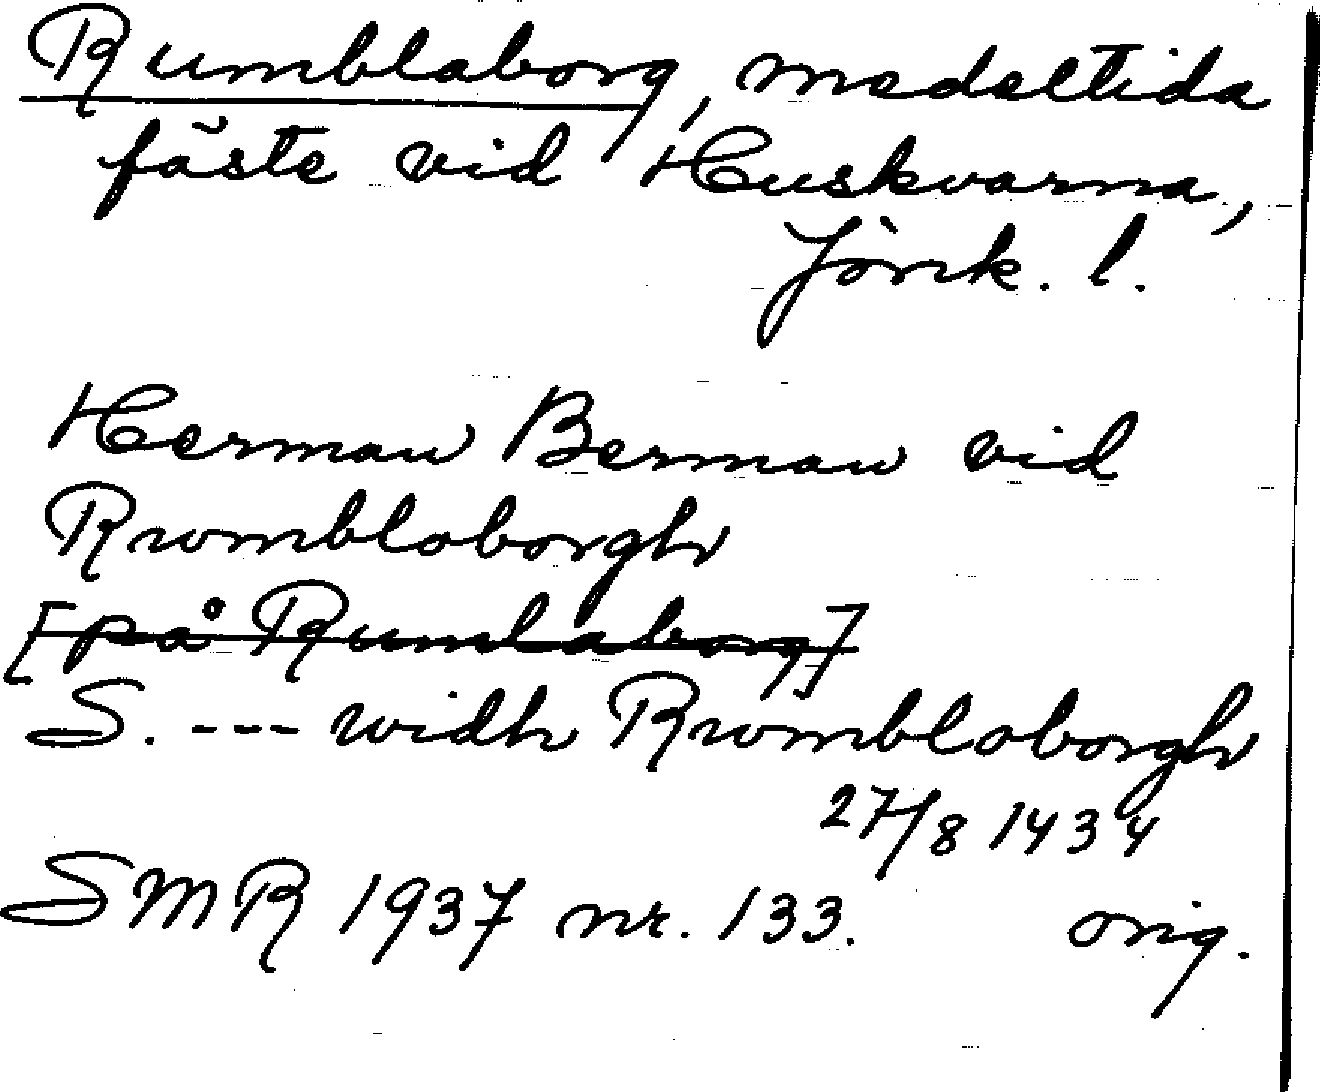 Rumblaborg, medeltida
fäste vid Huskvarna,
Jönk. l.
Herman Berman vid
Rwmbloborgh
[på Rumlaborg]
S. --- widh Rwmbloborgh
27/8 1434
SMR 1937 nr. 133. orig.